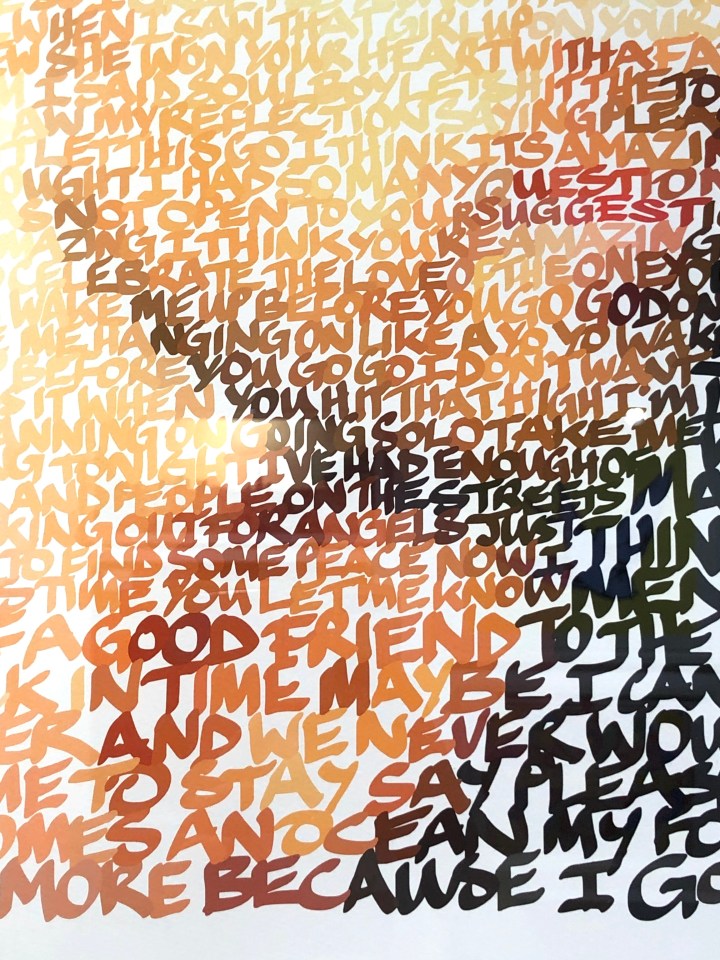 WHEN I SAW THAT GIRL UPON YOUR
W SHE WON YOUR HEART WITH A FA
I SAID SOUL BOY LETS HIT THE TO
AW MY REFLECTION SAYING PLEA
LET THIS GO I THINK ITS AMAZIN
OUGHT I HAD SO MANY QUESTION
S NOT OPEN TO YOUR SUGGESTI
MAZING I THINK YOURE AMAZIN
CELEBRATE THE LOVE OF THE ONE YO
WAKE ME UP BEFORE YOU GO GO DON
ME HANGING ON LIKE A YO YO WAK
BEFORE YOU GO GO I DON'T WANT
IT WHEN YOU HIT THAT HIGH I'M
ANNING ON GOING SOLO TAKE ME
G TONIGHT IVE HAD ENOUGH OF
AND PEOPLE ON THE STREETS MA
KING OUT FOR ANGELS JUST
TO FIND SOME PEACE NOW I THIN
S TIME YOU LET ME KNOW MEN
F A GOOD FRIEND TO THE
K IN TIME MAYBE I CAN
ER AND WE NEVER WOU
ME TO STAY SAY PLEAS
OMES AN OCEAN MY FO
MORE BECAUSE I GO